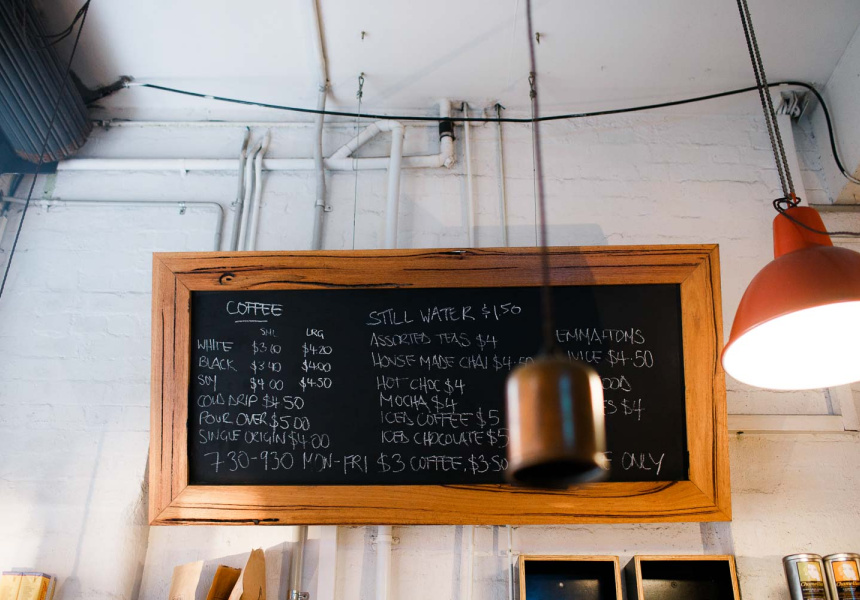 COFFEE
SML LRG
WHITE $3.60 $4.20
BLACK $3.40 $4.00
SOY $4.00 $4.50
COLD DRIP $4.50
POUR OVER $5.00
SINGLE ORIGIN $4.00
STILL WATER $1.50
ASSORTED TEAS $4
HOUSE MADE CHAI $4.50
HOT CHOC $4
MOCHA $4
ICED COFFEE $5
ICED CHOCOLATE $5
EMMA+TOMS
$4.50
$4
7.30-9.30 MON-FRI $3 COFFEE, $3.50 ONLY